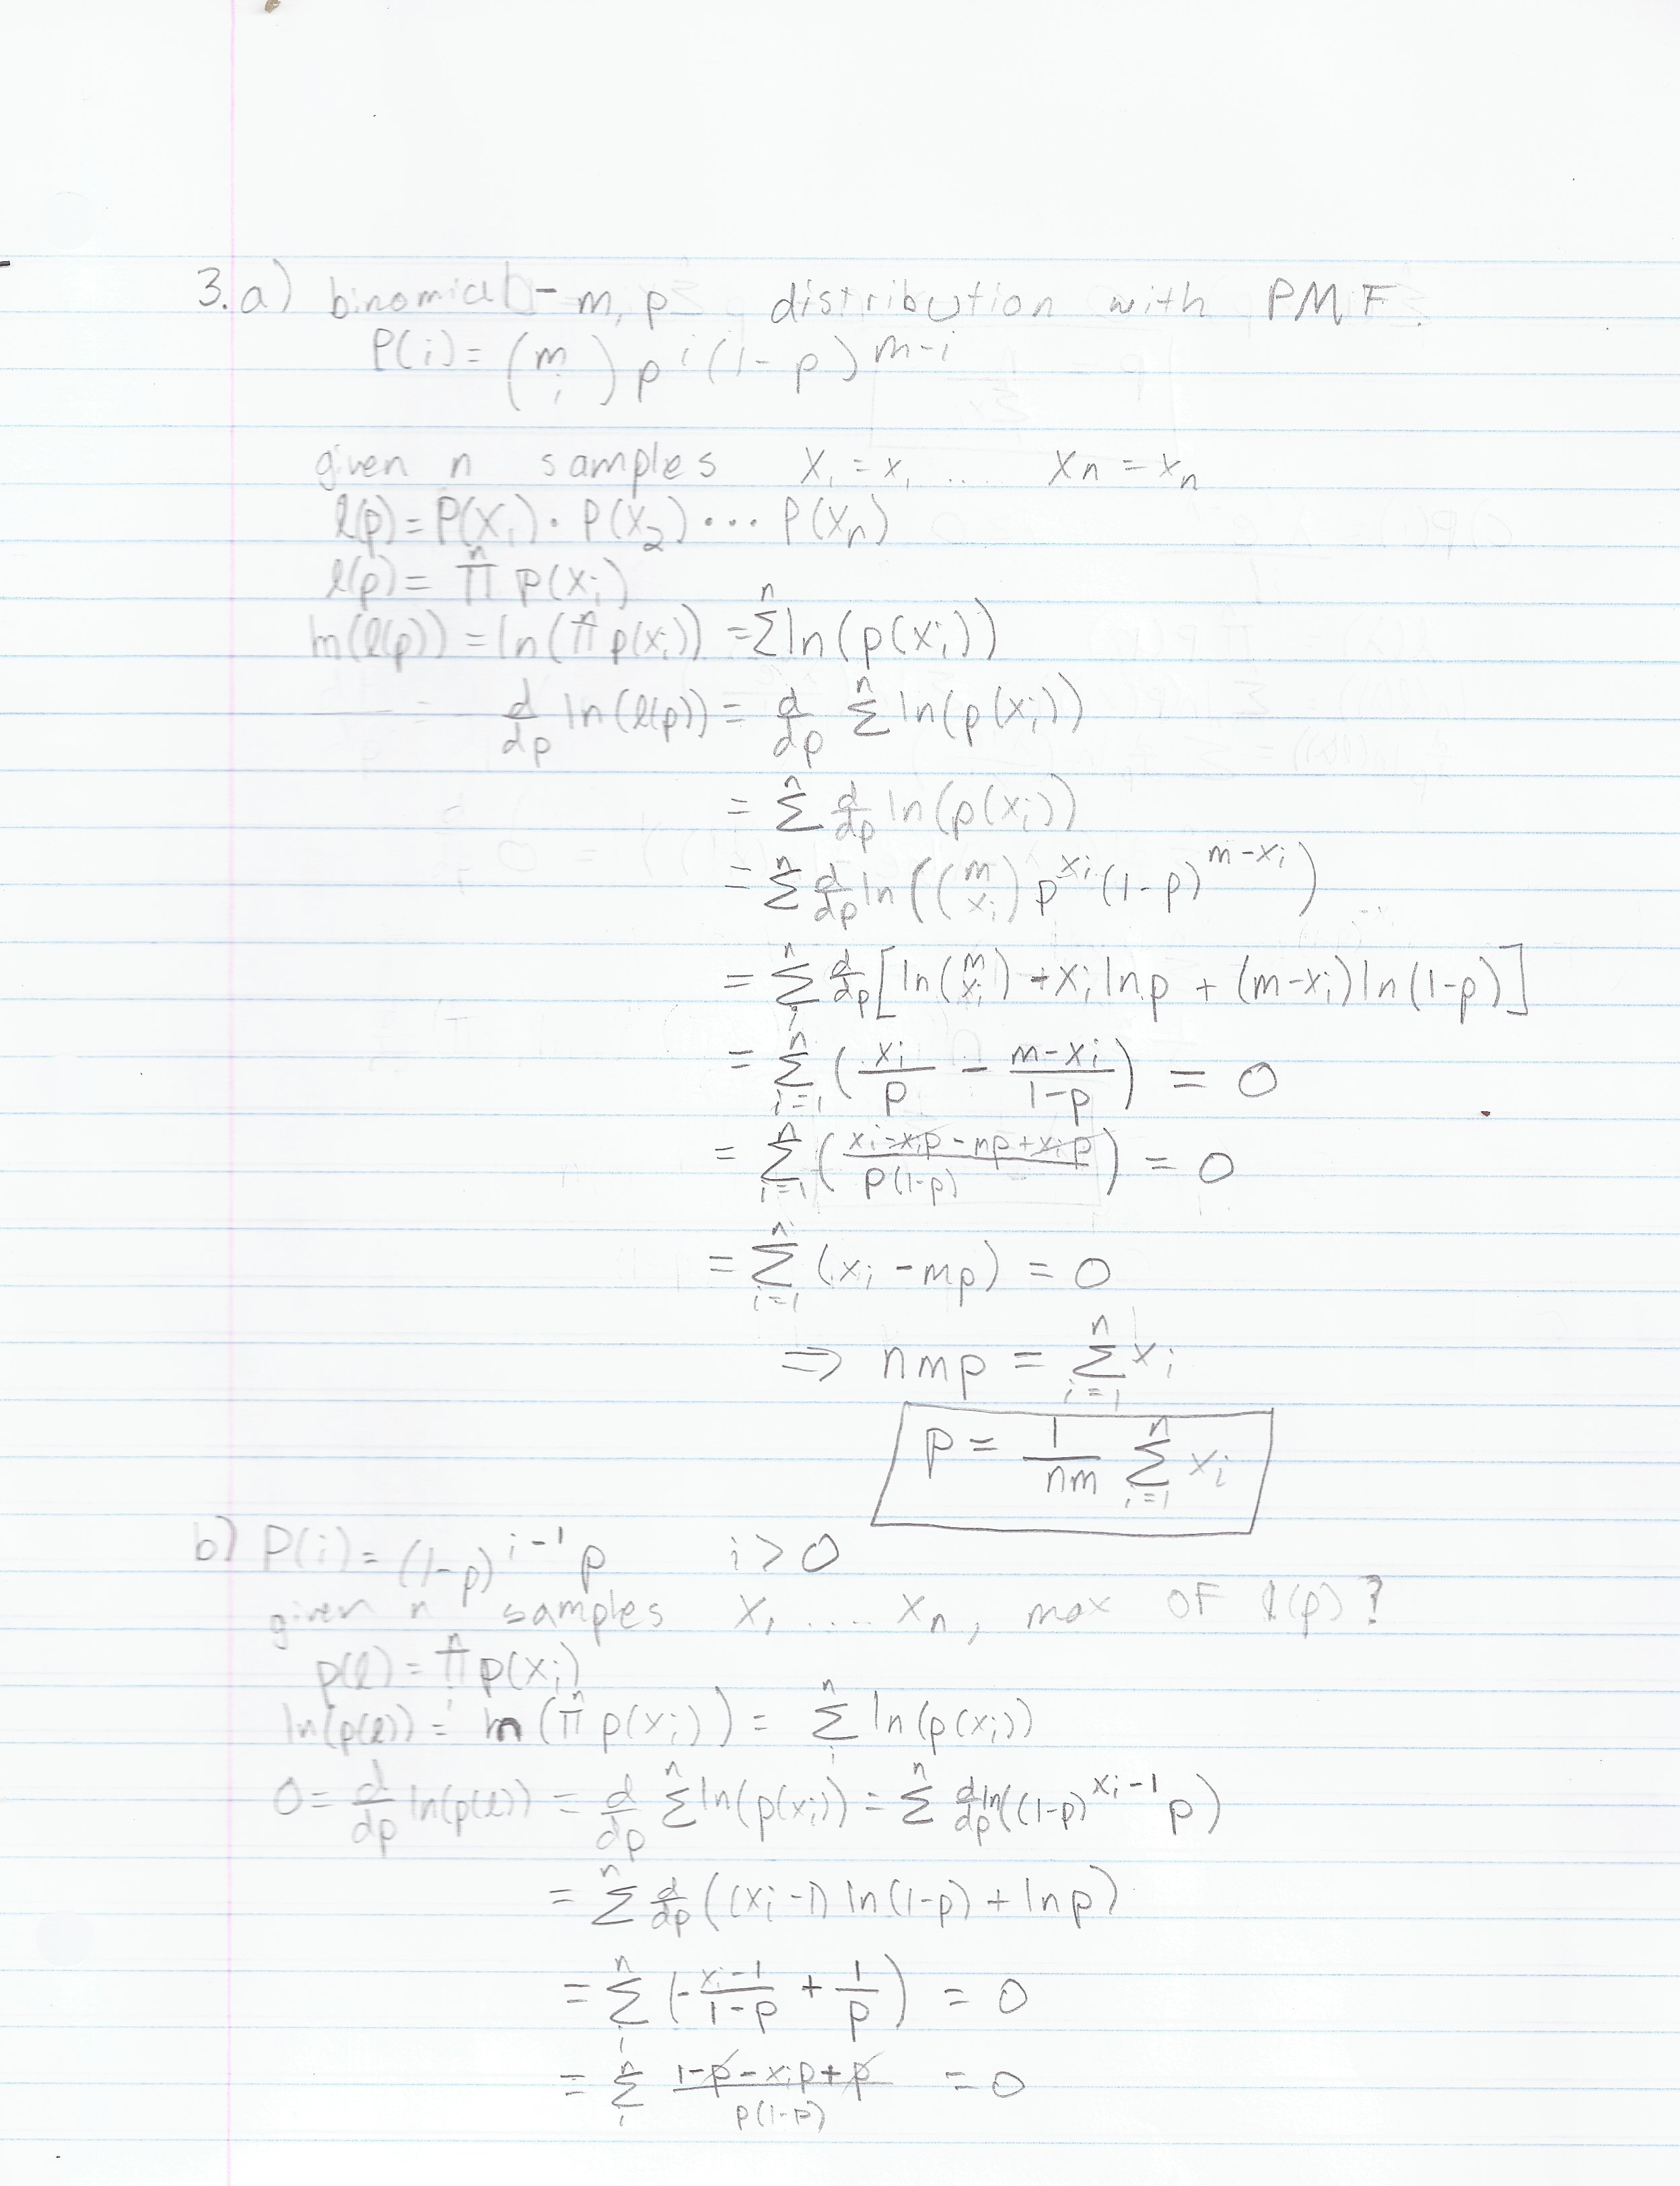 3. a) binomial - m, p distribution with PMF
P(i) = (m i) p^i (1-p)^{m-i}
given n samples X₁ = x₁ .... Xn = xn
l(p) = P(X₁) · P(X₂) ··· P(Xn)
l(p) = Π^n P(xi)
ln(l(p)) = ln(Π^n p(xi)) = Σ^n ln(p(xi))
d/dp ln(l(p)) = d/dp Σ^n ln(p(xi))
= Σ^n d/dp ln(p(xi))
= Σ^n d/dp ln((m xi) p^{xi} (1-p)^{m-xi})
= Σ^n d/dp [ln(m xi) + xi ln p + (m-xi) ln(1-p)]
= Σ_{i=1}^n (xi/p - (m-xi)/(1-p)) = 0
= Σ_{i=1}^n ((xi - xip - mp + xip)/(p(1-p))) = 0
= Σ_{i=1}^n (xi - mp) = 0
⇒ nmp = Σ_{i=1}^n xi
p = 1/nm Σ_{i=1}^n xi
b) P(i) = (1-p)^{i-1} p i > 0
given n samples X₁ .... Xn, max OF l(p)?
p(l) = Π^n p(xi)
ln(p(l)) = ln(Π^n p(xi)) = Σ^n ln(p(xi))
0 = d/dp ln(p(l)) = d/dp Σ^n ln(p(xi)) = Σ^n d/dp ln((1-p)^{xi-1} p)
= Σ^n d/dp ((xi-1) ln(1-p) + ln p)
= Σ^n (-(xi-1)/(1-p) + 1/p) = 0
= Σ^n (1 - p - xip + p)/(p(1-p)) = 0